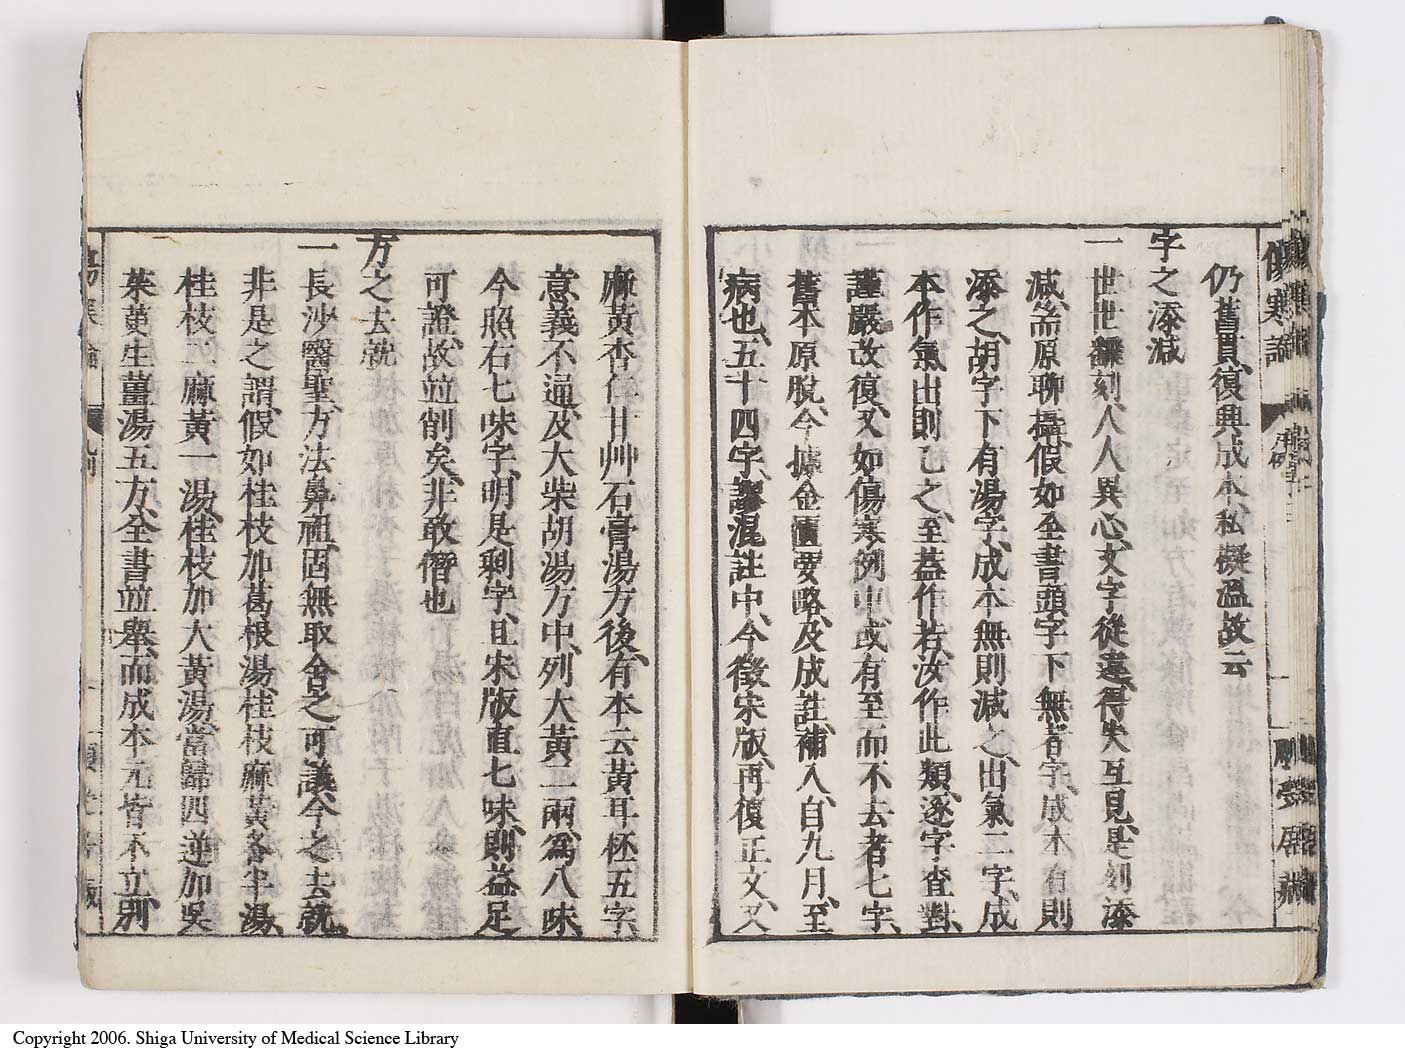 仍舊貫、復興成本、私擬溫故云
字之添減
一世世飜刻、人人異心、文字從違、得失互見、是刻添
減、㒸原聊攝、假如至書頭字下無者字、成本有則
添之、胡字下有湯字、成本無則減之、出氣二字、成
本作氣出則乙之、至蓋作若、汝作此類、逐字查對、
謹嚴改復、又如傷寒例中、或有至而不去者七字、
舊本原脫、今據金匱要略、及成註、補入、自九月、至
病也、五十四字、謬混註中、今徵宋版、再復正文、又
麻黃杏仁甘艸石膏湯方後、有本云黃耳杯五字、
意義不通、及大柴胡湯方中、列大黃二兩、爲八味、
今照右七味字、明是剩字、且宋版直七味、則益足
可證、故竝削矣、非敢僭也
方之去就
一長沙醫聖、方法鼻祖、固無取舍之可議、今之去就、
非是之謂、假如桂枝加葛根湯、桂枝麻黃各半湯、
桂枝二麻黃一湯、桂枝加大黃湯、當歸四逆加吳
茱萸生薑湯五方、全書竝舉、而成本元皆不立、別
傷寒論
Copyright 2006. Shiga University of Medical Science Library